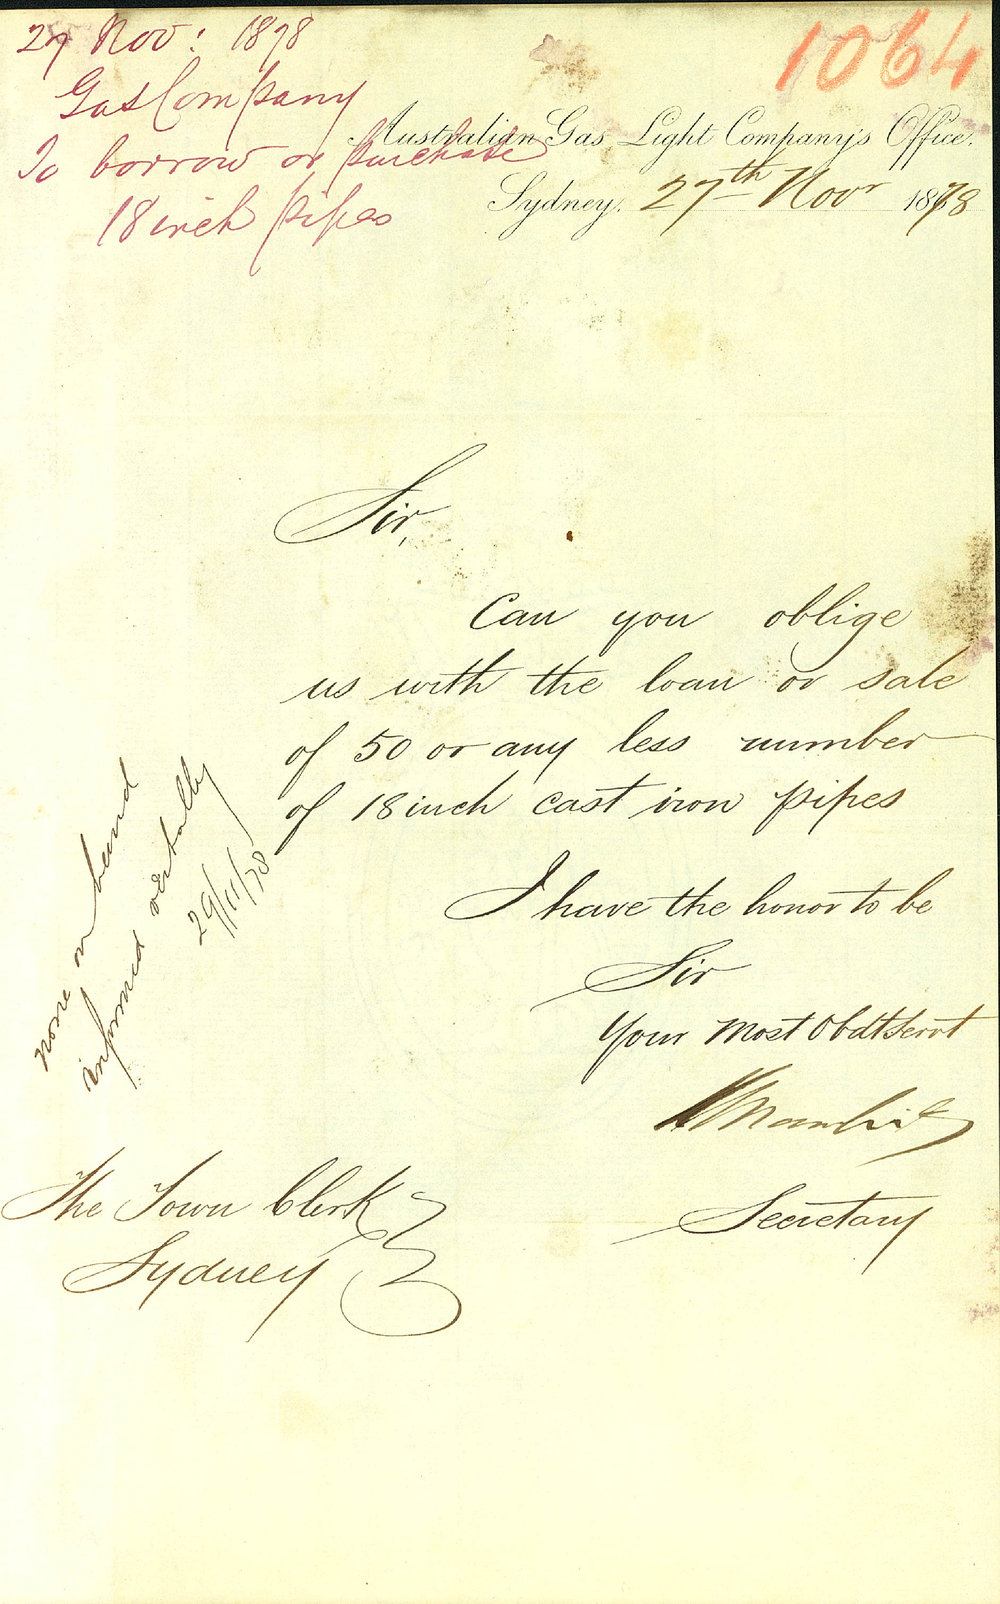 27 Nov: 1878
Gas Company
To borrow or purchase
18 inch pipes
1064
Australian Gas Light Company's Office.
Sydney. 27th Novr 1878
Sir,
Can you oblige
us with the loan or sale
of 50 or any less number
of 18 inch cast iron pipes
I have the honor to be
Sir
Your Most Obdt Servt
Secretary
The Town Clerk
Sydney
none on hand
informed verbally
29/11/78